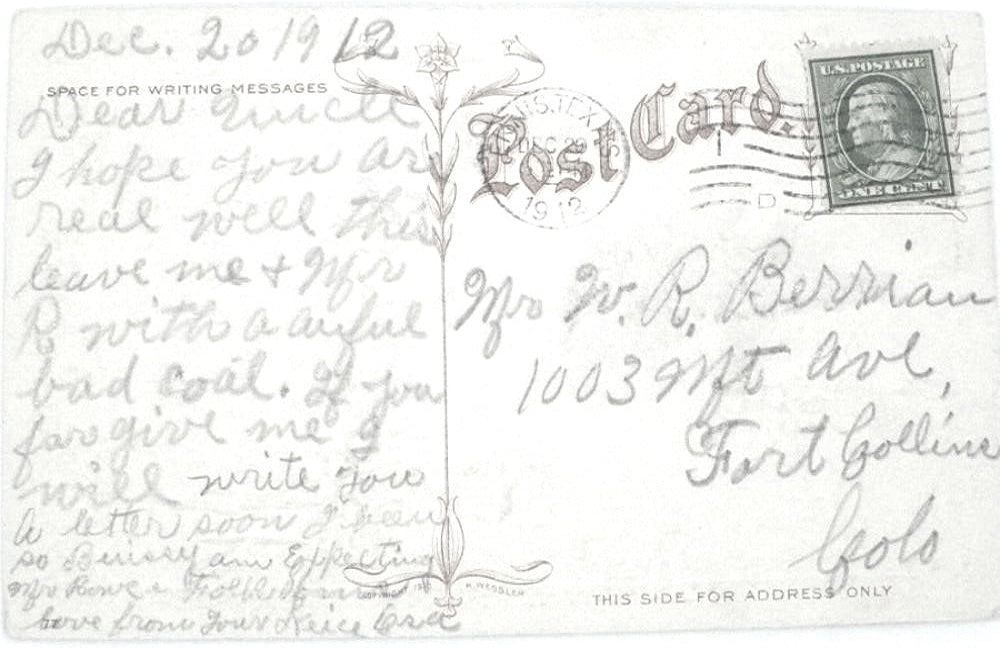 Dec. 20 1912
SPACE FOR WRITING MESSAGES
Dear Uncle
I hope you ar
real well this
leave me + Mr
R with a auful
bad coal. If you
for give me I
will write you
a letter soon I been
so Beussy am Expecting
Mr Rowe Folk
love from Your Neice
Post Card.
DEC 20
1912
U.S. POSTAGE
ONE CENT
D
Mr W. R. Berrian
1003 Mt Ave,
Fort Collins
Colo
COPYRIGHT H. WESSLER
THIS SIDE FOR ADDRESS ONLY